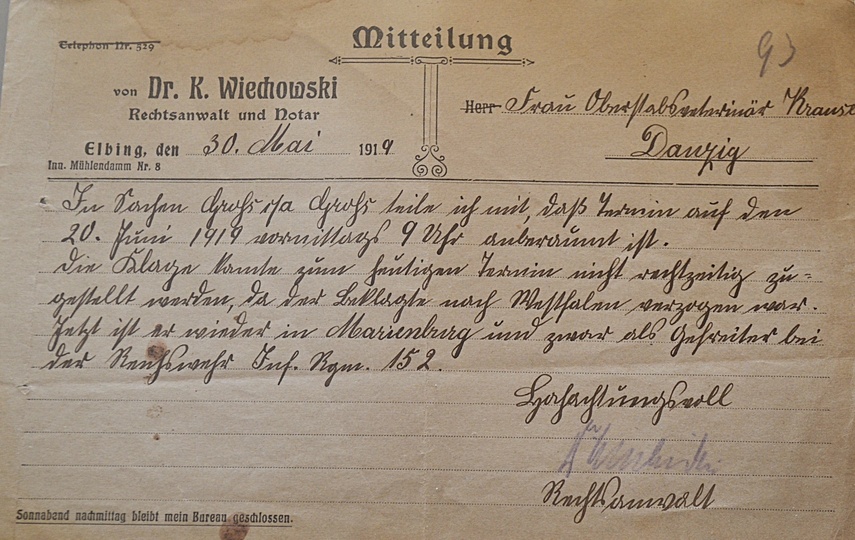 Telephon Nr. 529
Mitteilung
93
von Dr. K. Wiechowski
Rechtsanwalt und Notar
Elbing, den 30. Mai 1919
Inn. Mühlendamm Nr. 8
Herr Frau Oberstabsveterinär Krause
Danzig
In Sachen Grohs c/a Grohs teile ich mit, daß Termin auf den
20. Juni 1919 vormittags 9 Uhr anberaumt ist.
Die Klage konnte zum heutigen Termin nicht rechtzeitig zu=
gestellt werden, da der Beklagte nach Westfalen verzogen war.
Jetzt ist er wieder in Marienburg und zwar als Gefreiter bei
der Reichswehr Inf. Rgm. 152.
Hochachtungsvoll
Rechtsanwalt
Sonnabend nachmittag bleibt mein Bureau geschlossen.